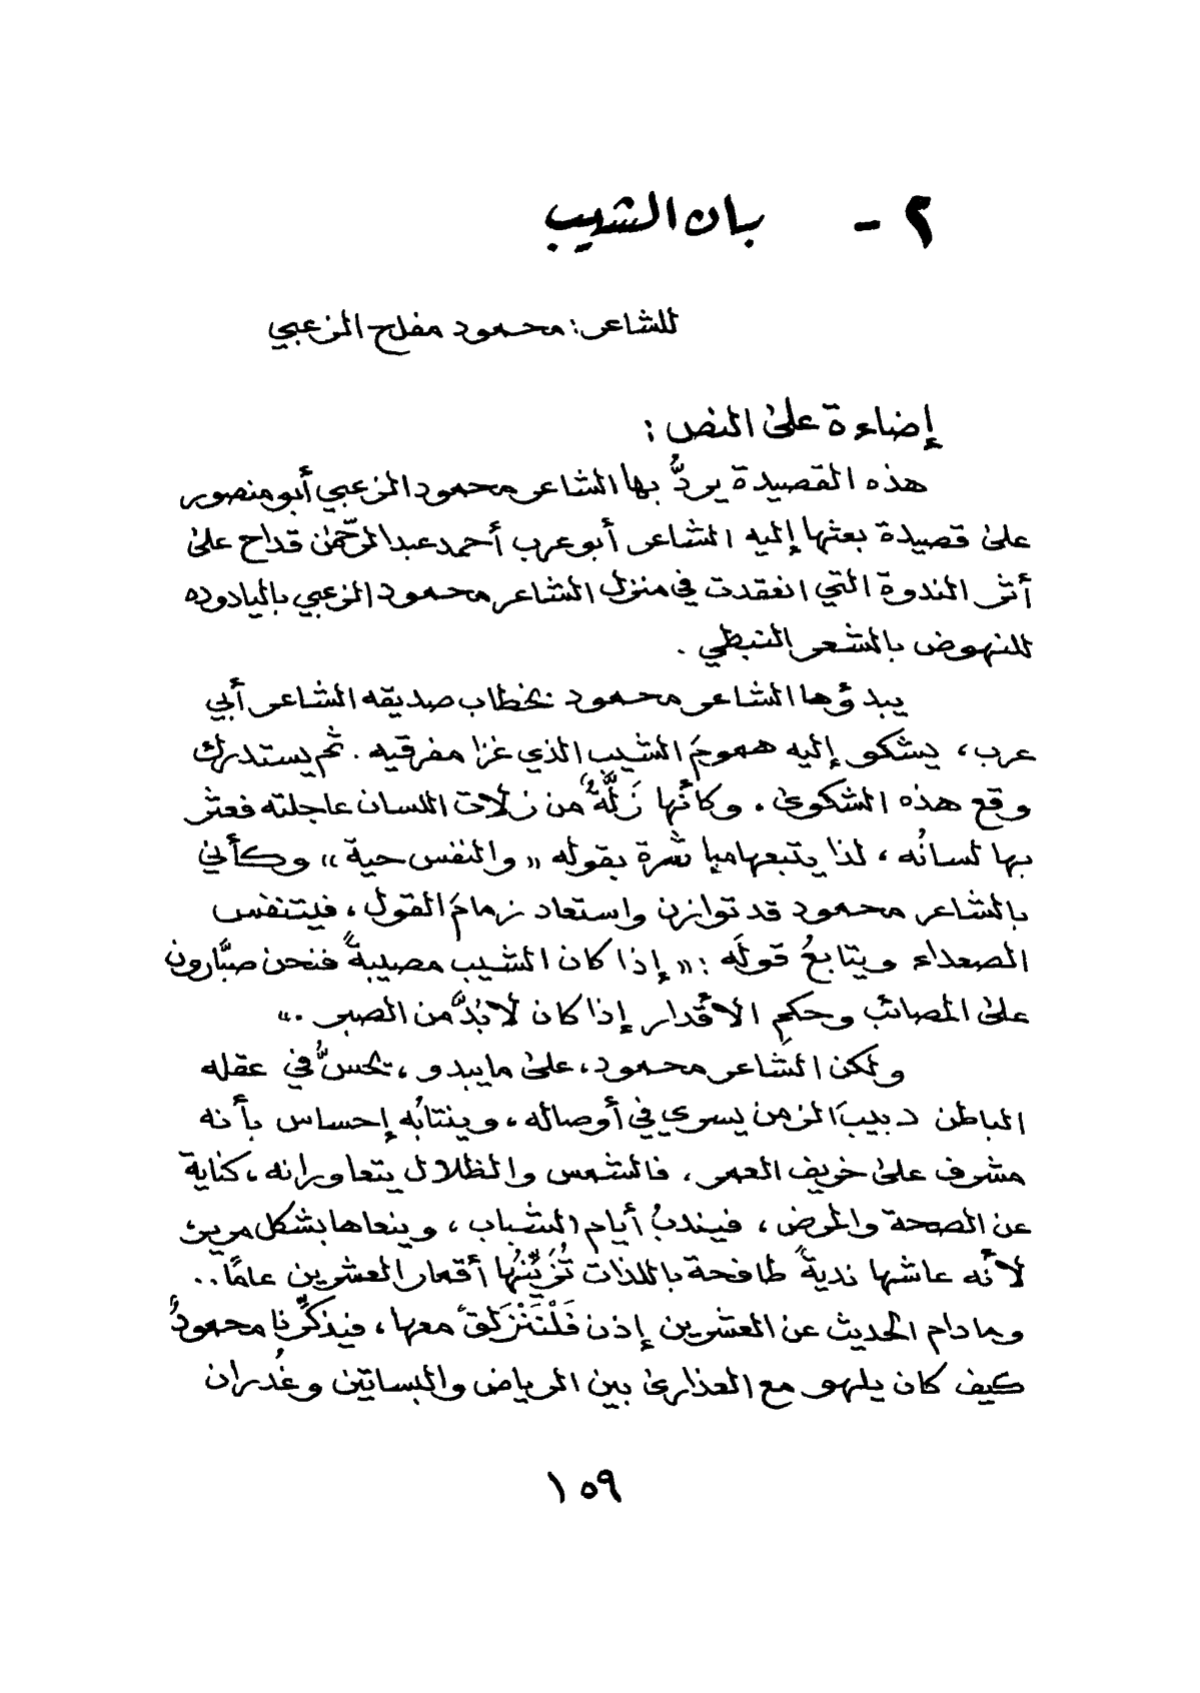 ٢ - بان الشيب
للشاعر: محمود مفلح الزعبي
إضاءة على النص :
هذه القصيدة يردُّ بها الشاعر محمود الزعبي أبو منصور
على قصيدة بعثها إليه الشاعر أبو عرب أحمد عبد الرحمٰن قداح على
أثر الندوة التي انعقدت في منزل الشاعر محمود الزعبي باليادوده
للنهوض بالشعر النبطي .
يبدؤها الشاعر محمود بخطاب صديقه الشاعر أبي
عرب، يشكو إليه همومَ الشيب الذي غزا مفرقيه . ثم يستدرك
وقع هذه الشكوى . وكأنها زَلَّةٌ من زلات اللسان عاجلته فعثر
بها لسانُه ، لذا يتبعها مباشرة بقوله « والنفس حية » وكأني
بالشاعر محمود قد توازن واستعاد زمامَ القول ، فيتنفس
الصعداء ويتابعُ قولَه : « إذا كان الشيب مصيبةً فنحن صبَّارون
على المصائب وحكمِ الأقدار إذا كان لابُدَّ من الصبر .»
ولكن الشاعر محمود، على ما يبدو ، يحسُّ في عقله
الباطن دبيبَ الزمن يسري في أوصاله ، وينتابُه إحساس بأنه
مشرف على خريف العمر . فالشمس والظلال يتعاورانه ، كناية
عن الصحة والمرض ، فيندبُ أيام الشباب ، وينعاها بشكل مريرٍ
لأنه عاشها نديةً طافحة باللذات تُزَيِّنُها أقمار العشرين عامًا ..
وما دام الحديث عن العشرين إذن فَلْنَنْزَلِقْ معها ، فيذكِّرنا محمودٌ
كيف كان يلهو مع العذارى بين الرياض والبساتين وغُدران
١٥٩